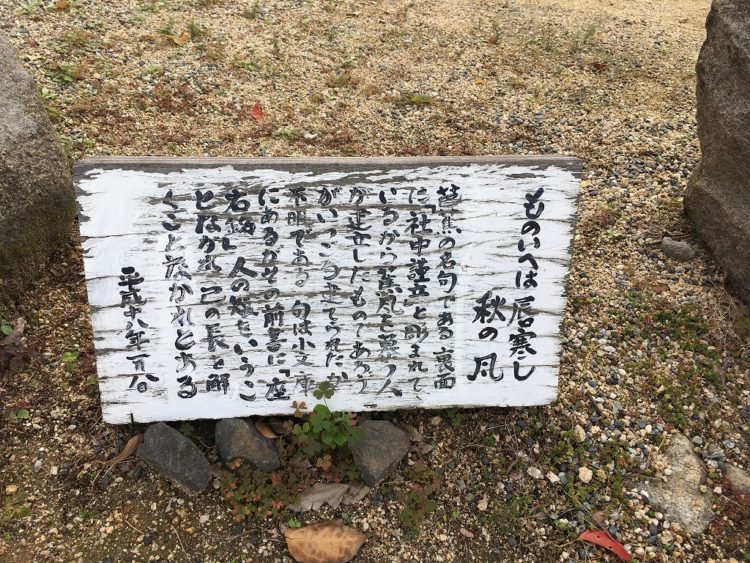 ものいへは唇寒し
秋の風
芭蕉の名句である 裏面
に「社中謹立」と彫まれて
いるから蕉風を慕う人
が建立したものであろう
がいつごろ建てられたか
不明である 句は小文庫
にあるがその前書に「座
右銘 人の短をいうこ
となかれ 己の長を説
くことなかれとある
平成十八年